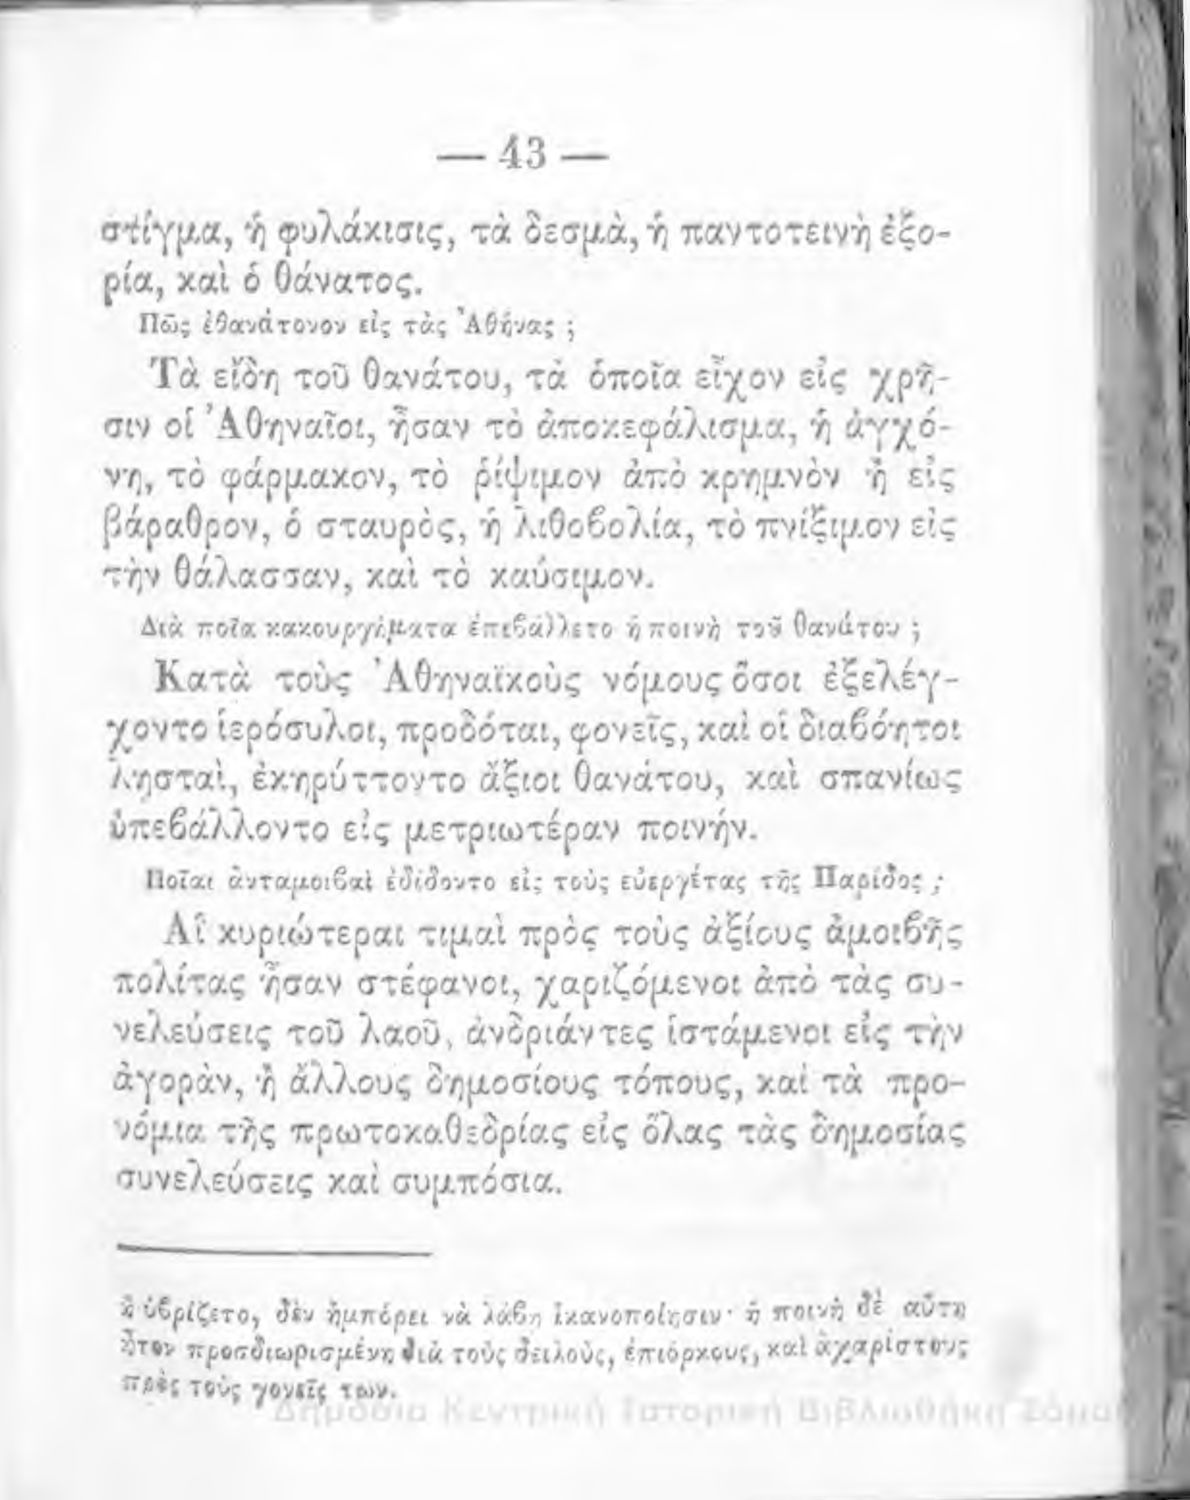 — 43 —
στίγμα, ἡ φυλάκισις, τὰ δεσμὰ, ἡ παντοτεινὴ ἐξο-
ρία, καὶ ὁ θάνατος.
Πῶς ἐθανάτονον εἰς τὰς Ἀθήνας ;
Τὰ εἴδη τοῦ θανάτου, τὰ ὁποῖα εἶχον εἰς χρῆ-
σιν οἱ Ἀθηναῖοι, ἦσαν τὸ ἀποκεφάλισμα, ἡ ἀγχό-
νη, τὸ φάρμακον, τὸ ῥίψιμον ἀπὸ κρημνὸν ἢ εἰς
βάραθρον, ὁ σταυρὸς, ἡ λιθοβολία, τὸ πνίξιμον εἰς
τὴν θάλασσαν, καὶ τὸ καύσιμον.
Διὰ ποῖα κακουργήματα ἐπεβάλλετο ἡ ποινὴ τοῦ θανάτου ;
Κατὰ τοὺς Ἀθηναϊκοὺς νόμους ὅσοι ἐξελέγ-
χοντο ἱερόσυλοι, προδόται, φονεῖς, καὶ οἱ διαβόητοι
λῃσταὶ, ἐκηρύττοντο ἄξιοι θανάτου, καὶ σπανίως
ὑπεβάλλοντο εἰς μετριωτέραν ποινήν.
Ποῖαι ἀνταμοιβαὶ ἐδίδοντο εἰς τοὺς εὐεργέτας τῆς Παρίδος ;
Αἱ κυριώτεραι τιμαὶ πρὸς τοὺς ἀξίους ἀμοιβῆς
πολίτας ἦσαν στέφανοι, χαριζόμενοι ἀπὸ τὰς συ-
νελεύσεις τοῦ λαοῦ, ἀνδριάντες ἱστάμενοι εἰς τὴν
ἀγορὰν, ἢ ἄλλους δημοσίους τόπους, καὶ τὰ προ-
νόμια τῆς πρωτοκαθεδρίας εἰς ὅλας τὰς δημοσίας
συνελεύσεις καὶ συμπόσια.
ἢ ὑβρίζετο, δὲν ἠμπόρει νὰ λάβῃ ἱκανοποίησιν· ἡ ποινὴ δὲ αὕτη
ἦτον προσδιωρισμένη διὰ τοὺς δειλοὺς, ἐπιόρκους, καὶ ἀχαρίστους
πρὸς τοὺς γονεῖς των.
Δημόσια Κεντρική Ιστορική Βιβλιοθήκη